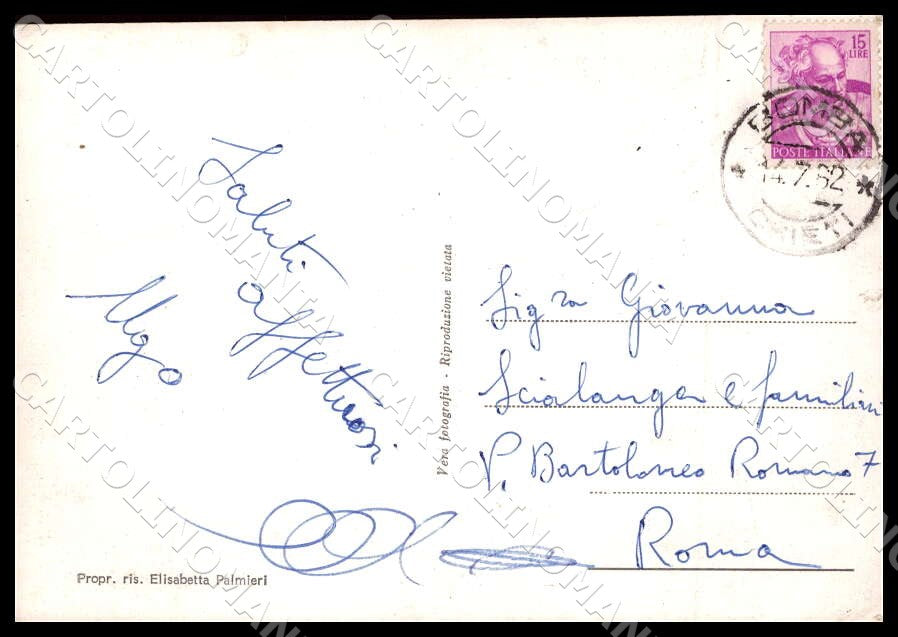 15
LIRE
POSTE ITALIANE
BOMBA
14.7.62
CHIETI
Saluti
affettuosi
Ugo
Vera fotografia - Riproduzione vietata
Sig ra Giovanna
Scialanga e familiari
V. Bartolomeo Romano 7
Roma
Propr. ris. Elisabetta Palmieri
CARTOLINOMANIA